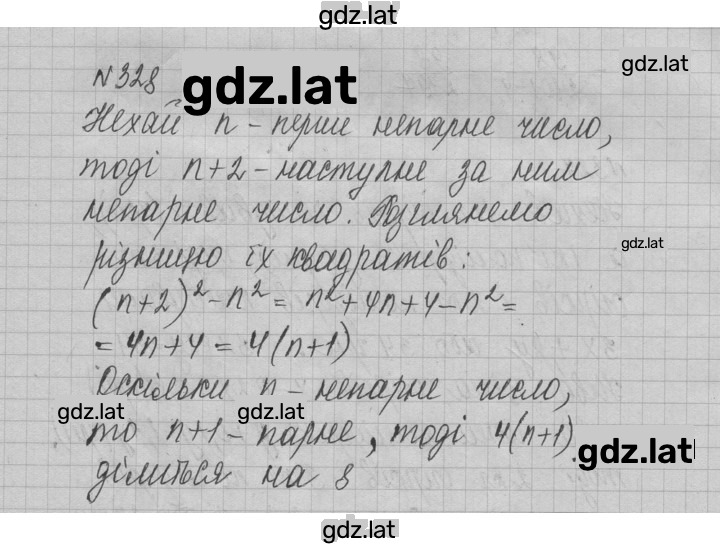 gdz.lat
№328 gdz.lat gdz.lat
Нехай n - перше непарне число,
тоді n+2 - наступне за ним
непарне число. Розглянемо
gdz.lat
різницю їх квадратів:
(n+2)² - n² = n² + 4n + 4 - n² =
= 4n + 4 = 4(n+1)
Оскільки n - непарне число,
gdz.lat gdz.lat
то n+1 - парне, тоді 4(n+1)
gdz.lat
ділиться на 8
gdz.lat